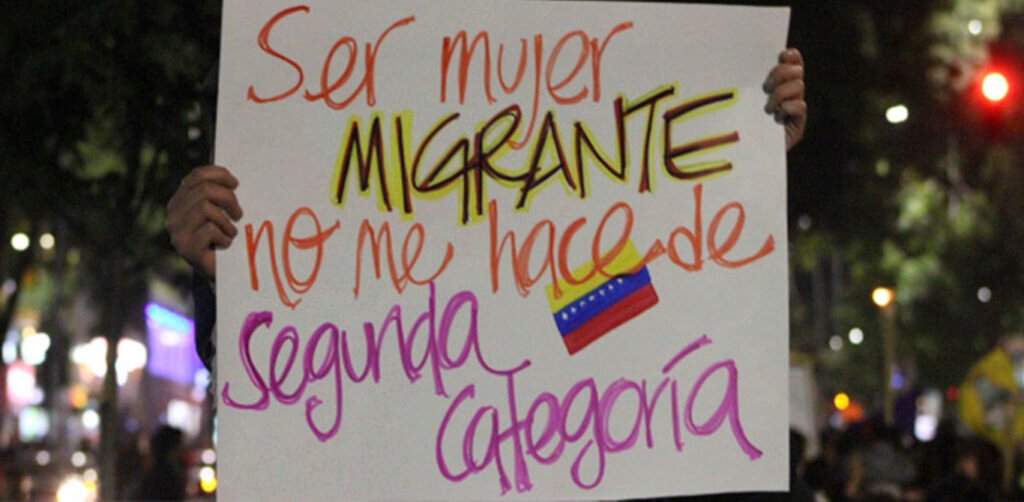 Ser mujer
MIGRANTE
no me hace de
segunda
categoría